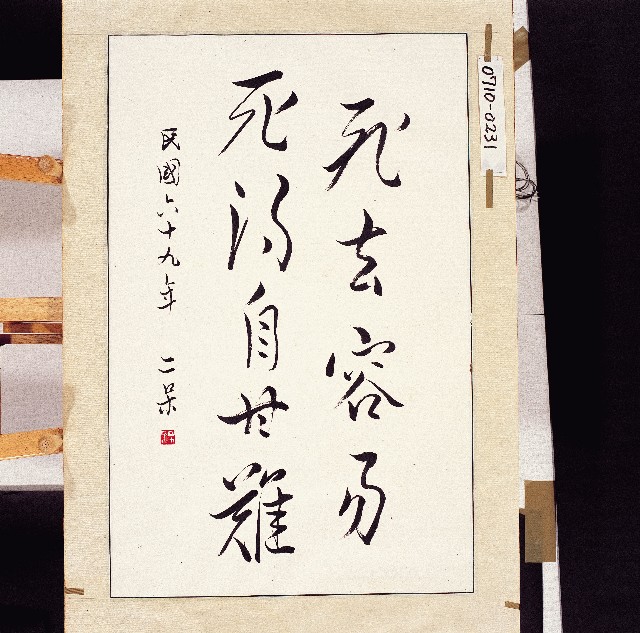 死去容易
死得自甘難
民國六十九年 二呆
0710-0231